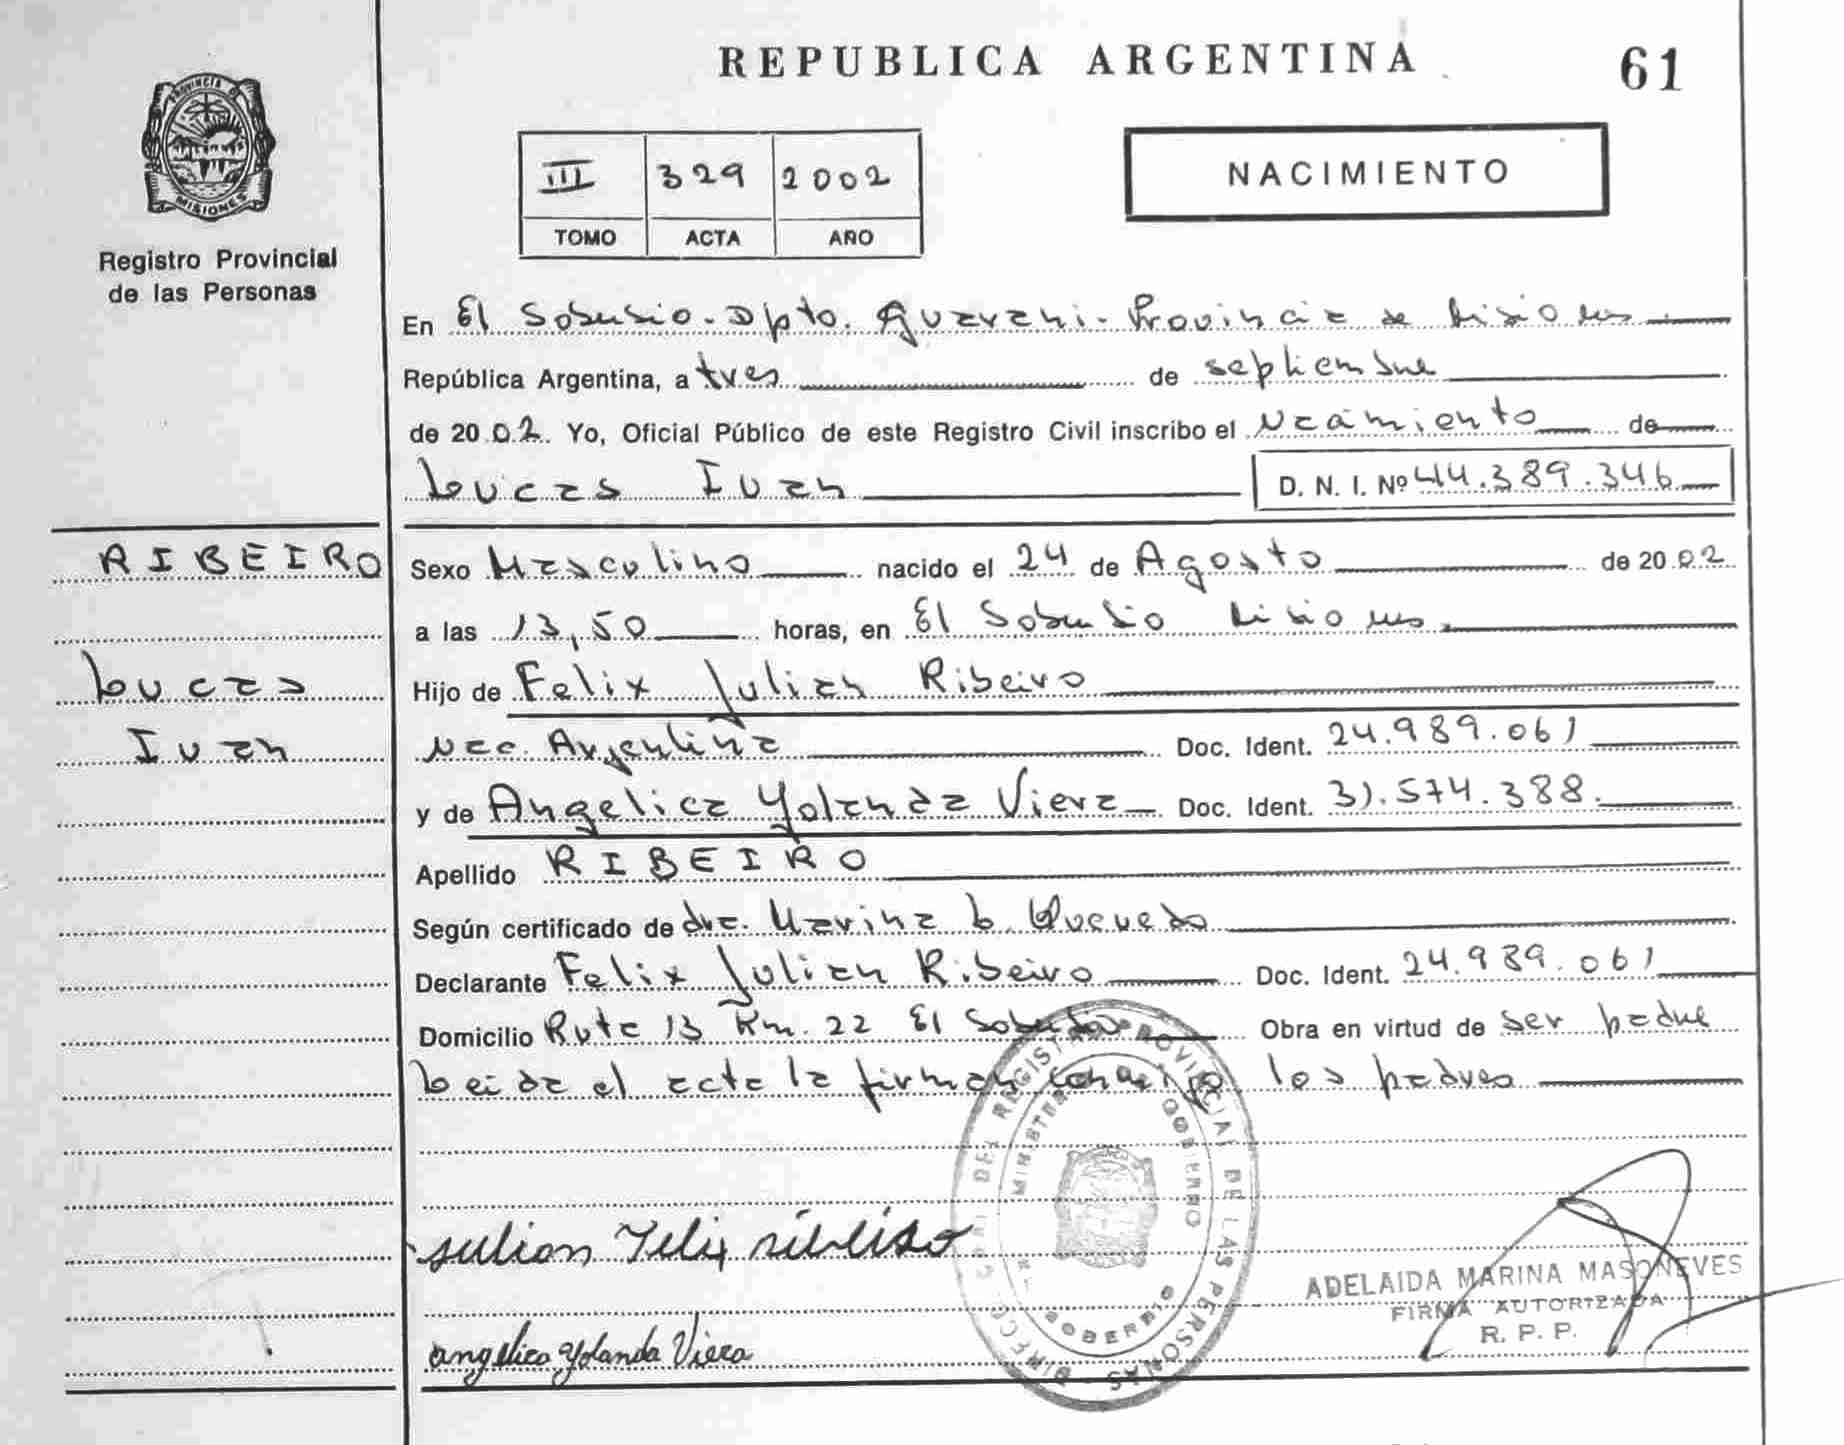 REPUBLICA ARGENTINA
61
PROVINCIA DE
MISIONES
Registro Provincial
de las Personas
III 329 2002
TOMO ACTA AÑO
NACIMIENTO
En El Soberbio - Dpto. Guarani - Provincia de Misiones
República Argentina, a tres de septiembre
de 2002. Yo, Oficial Público de este Registro Civil inscribo el Nacimiento de
Lucas Ivan D. N. I. Nº 44.389.346
RIBEIRO
Lucas
Ivan
Sexo Masculino nacido el 24 de Agosto de 2002
a las 13,50 horas, en El Soberbio Misiones.
Hijo de Felix Julian Ribeiro
Nac. Argentina Doc. Ident. 24.989.061
y de Angelica Yolanda Viera Doc. Ident. 31.574.388.
Apellido RIBEIRO
Según certificado de dra. Marina L. Quevedo
Declarante Felix Julian Ribeiro Doc. Ident. 24.989.061
Domicilio Ruta 13 Km. 22 El Soberbio Obra en virtud de ser padre
Leida el acta la firman conmigo los padres
DIRECC. GRAL. DEL REGISTRO PROVINCIAL DE LAS PERSONAS
MINISTERIO DE GOBIERNO
SOBERBIO
julian Felix ribeiro
angelica Yolanda Viera
ADELAIDA MARINA MASONEVES
FIRMA AUTORIZADA
R. P. P.